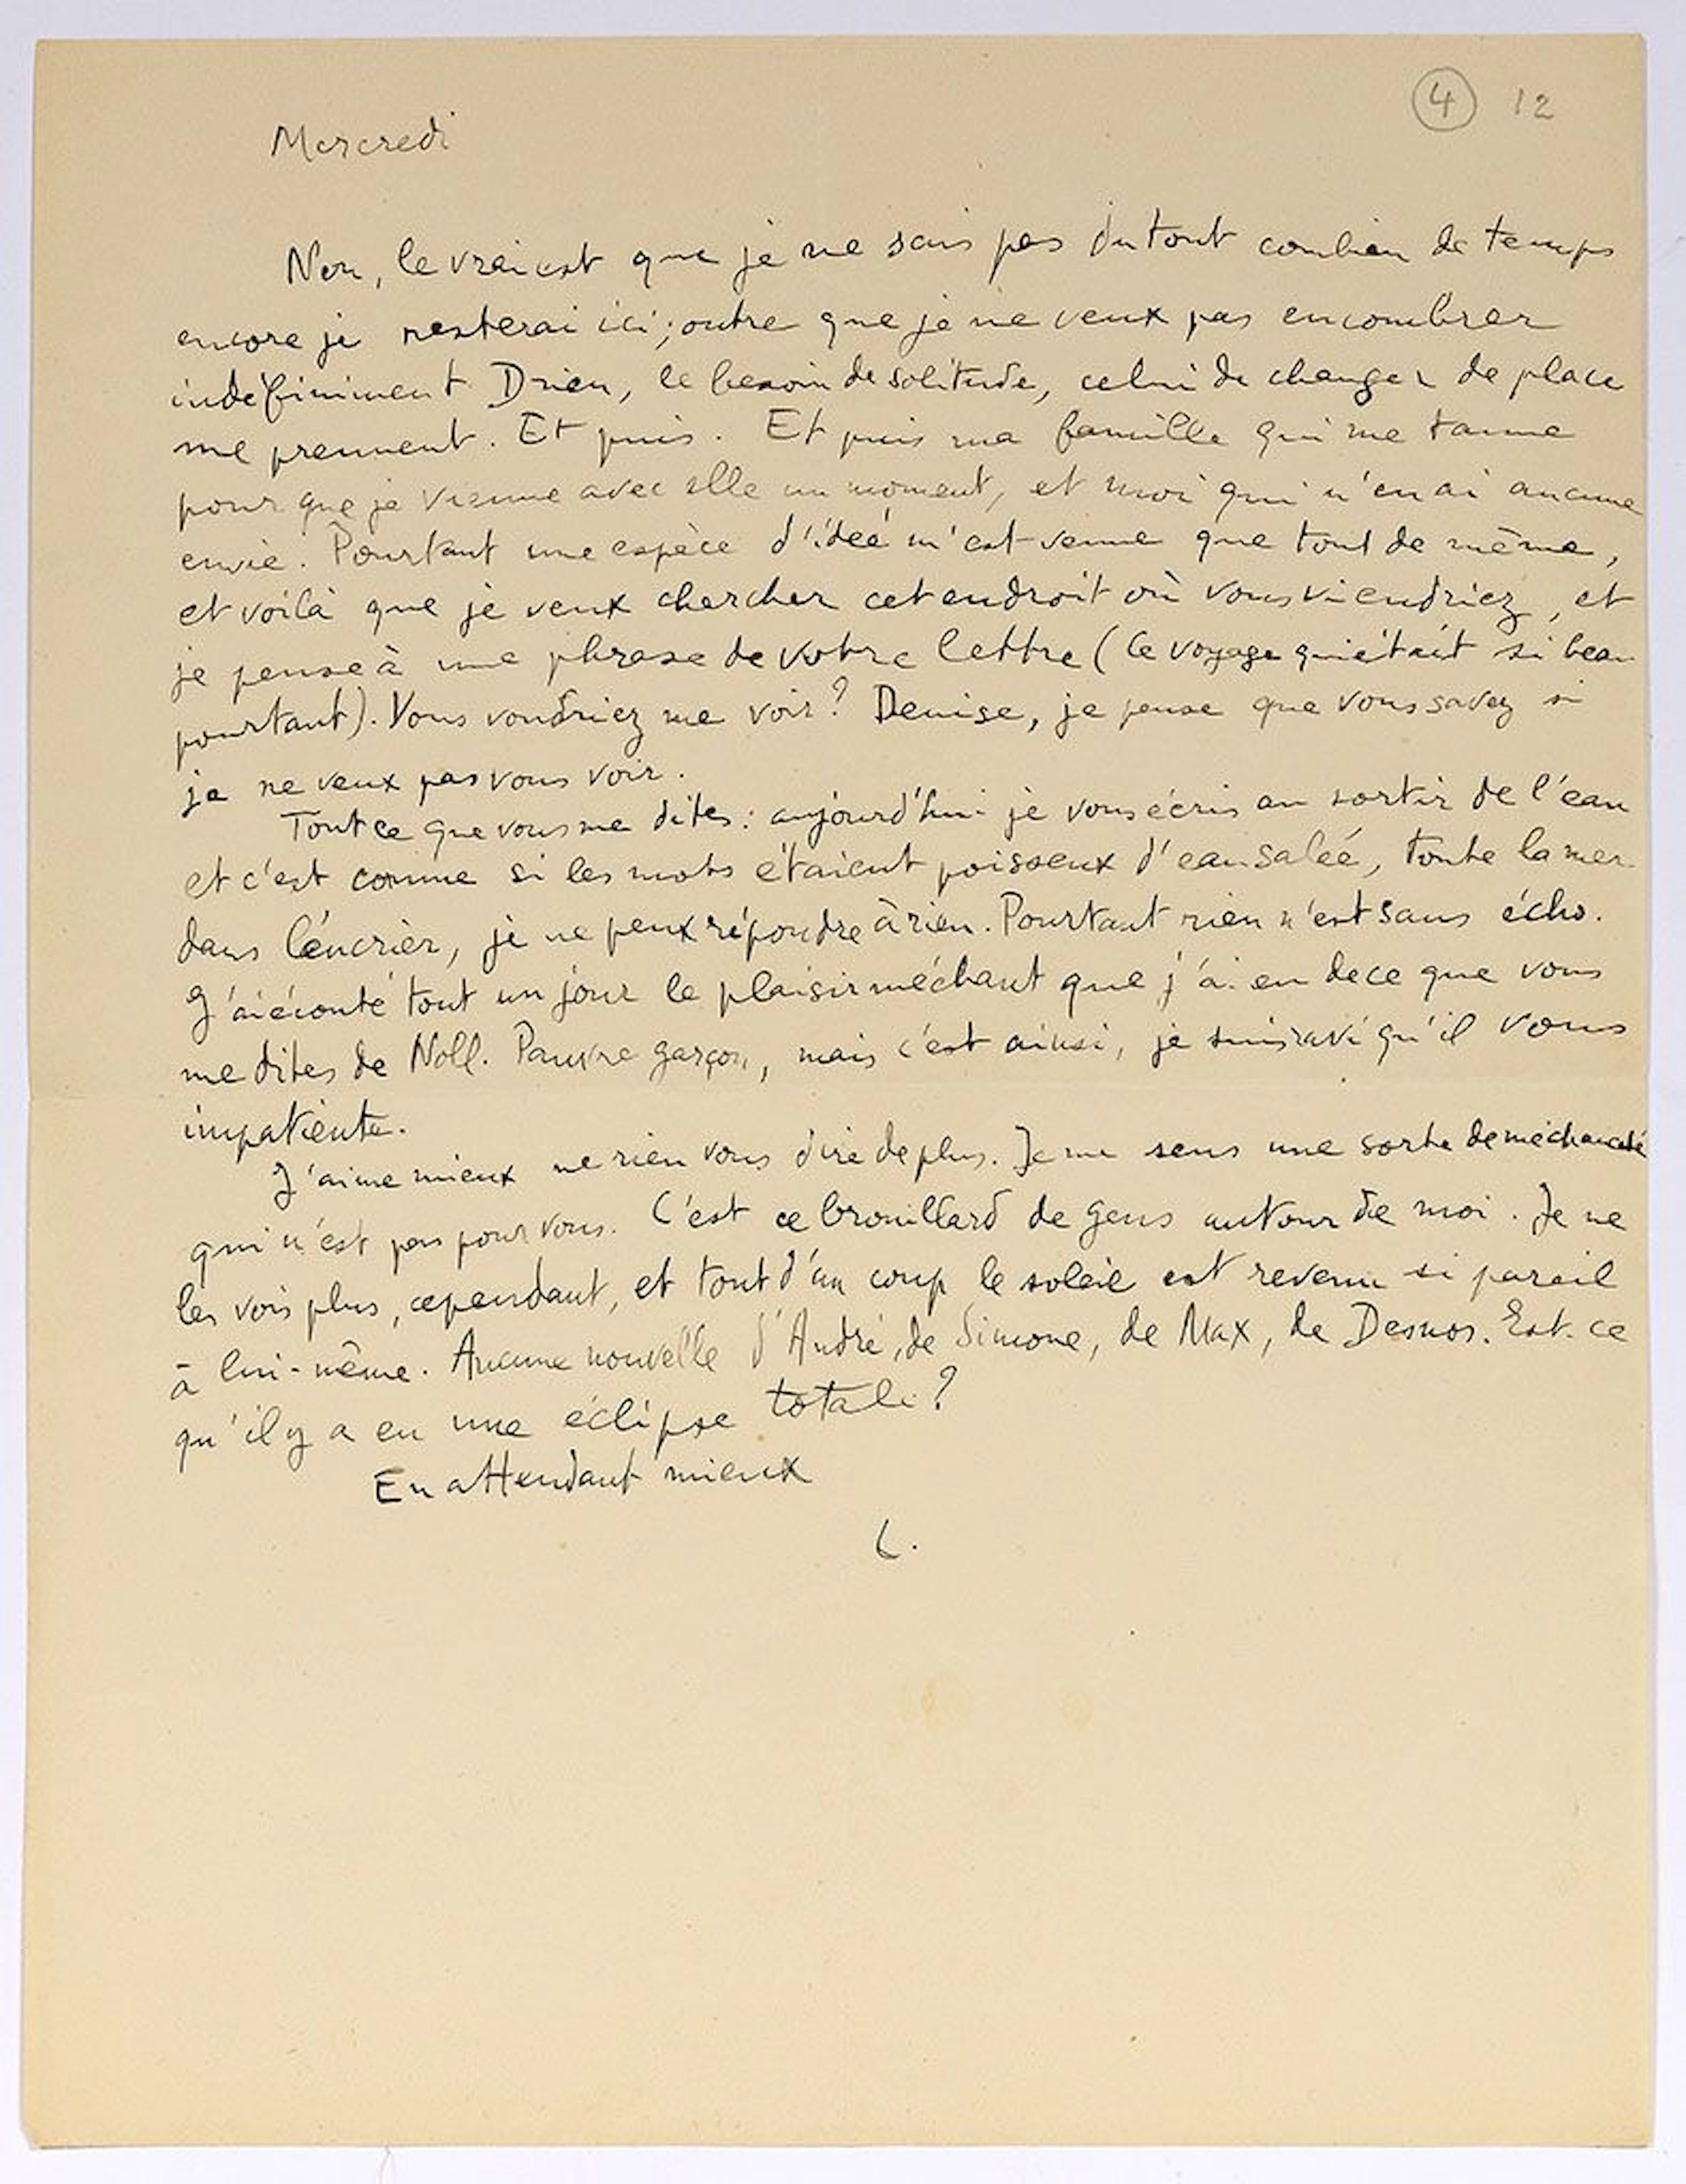 4 12
Mercredi
Non, le vrai est que je ne sais pas du tout combien de temps
encore je resterai ici ; outre que je ne veux pas encombrer
indéfiniment Drieu, le besoin de solitude, celui de changer de place
me prennent. Et puis. Et puis ma famille qui me tanne
pour que je vienne avec elle un moment, et moi qui n'en ai aucune
envie. Pourtant une espèce d'idée m'est venue que tout de même,
et voilà que je veux chercher cet endroit où vous viendriez, et
je pense à une phrase de votre lettre (le voyage qui était si beau
pourtant). Vous voudriez me voir ? Denise, je pense que vous savez si
je ne veux pas vous voir.
Tout ce que vous me dites : aujourd'hui je vous écris au sortir de l'eau
et c'est comme si les mots étaient poisseux d'eau salée, toute la mer
dans l'encrier, je ne peux répondre à rien. Pourtant rien n'est sans écho.
J'ai écouté tout un jour le plaisir méchant que j'ai eu de ce que vous
me dites de Noll. Pauvre garçon, mais c'est ainsi, je suis ravi qu'il vous
impatiente.
J'aime mieux ne rien vous dire de plus. Je me sens une sorte de méchanceté
qui n'est pas pour vous. C'est ce brouillard de gens autour de moi. Je ne
les vois plus, cependant, et tout d'un coup le soleil est revenu si pareil
à lui-même. Aucune nouvelle d'André, de Simone, de Max, de Desnos. Est-ce
qu'il y a eu une éclipse totale ?
En attendant mieux
L.